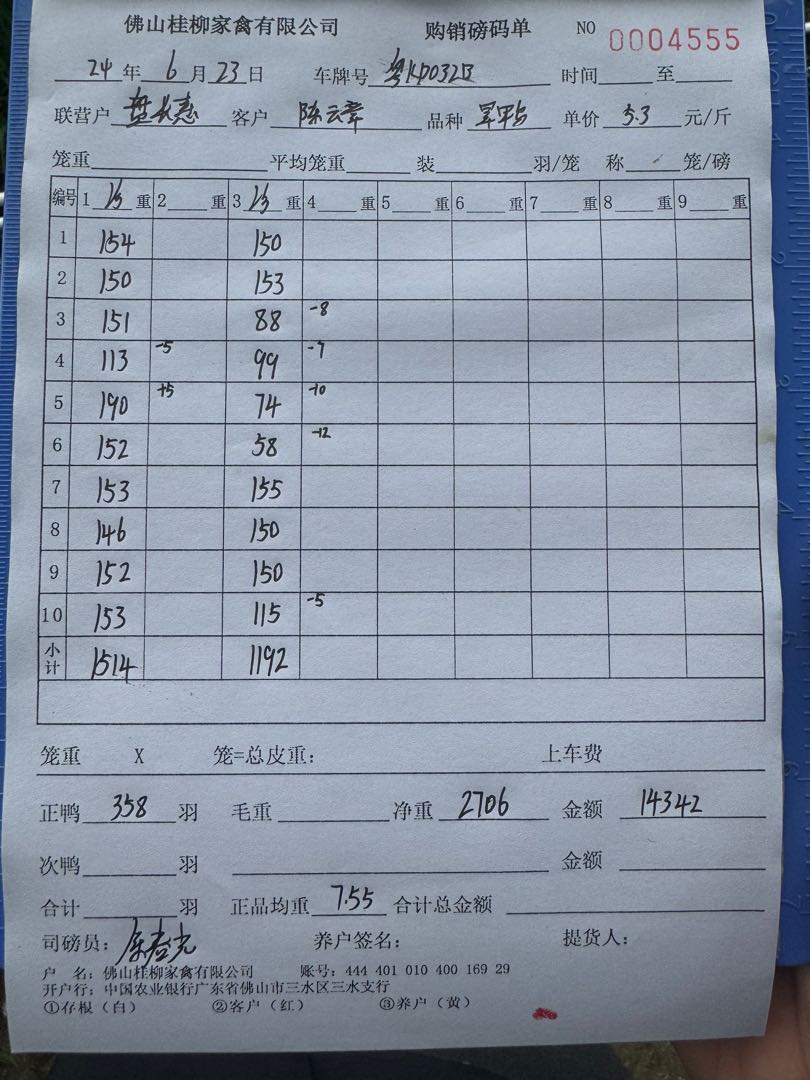 佛山桂柳家禽有限公司 购销磅码单 NO 0004555
24 年 6 月 23 日 车牌号 粤KP032B 时间 至
联营户 客户 陈云章 品种 单价 5.3 元/斤
笼重 平均笼重 装 羽/笼 称 笼/磅
编号 1 重 2 重 3 重 4 重 5 重 6 重 7 重 8 重 9 重
1 154 150
2 150 153
3 151 88 -8
4 113 -5 99 -7
5 190 +5 74 -10
6 152 58 -12
7 153 155
8 146 150
9 152 150
10 153 115 -5
小计 1514 1192
笼重 X 笼=总皮重: 上车费
正鸭 358 羽 毛重 净重 2706 金额 14342
次鸭 羽 金额
合计 羽 正品均重 7.55 合计总金额
司磅员: 养户签名: 提货人:
户 名: 佛山桂柳家禽有限公司 账号: 444 401 010 400 169 29
开户行: 中国农业银行广东省佛山市三水区三水支行
①存根(白) ②客户(红) ③养户(黄)